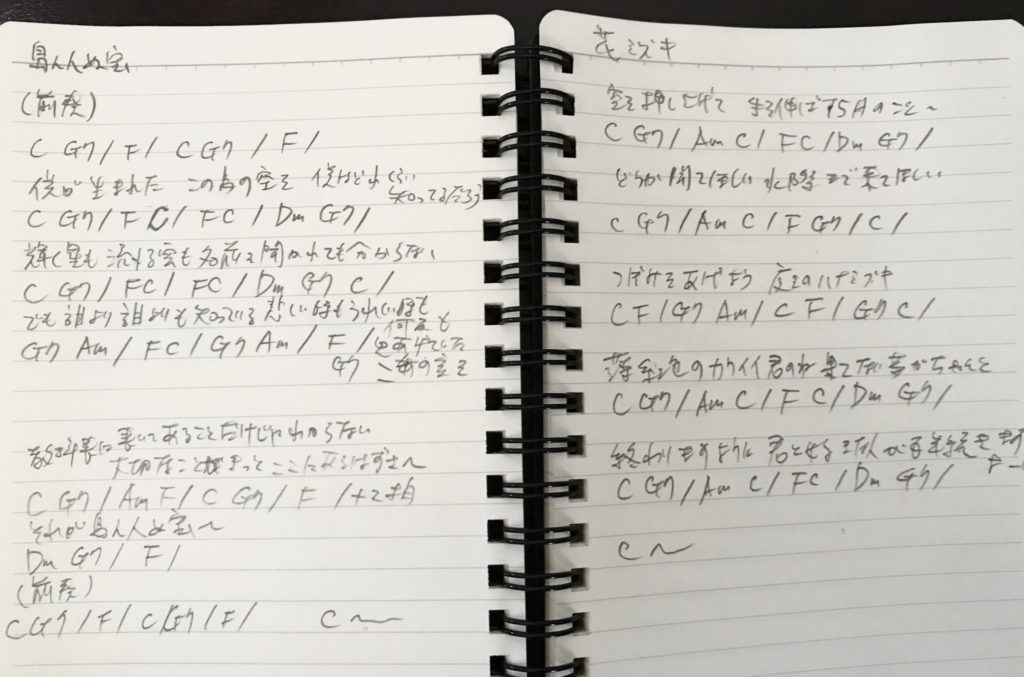 島んんぬ宝
(前奏)
C G7 / F / C G7 / F /
僕が生まれた この島の空を 僕はどれくらい
知ってるだろう
C G7 / F C / F C / Dm G7 /
輝く星も 流れる雲も 名前を聞かれても分からない
C G7 / F C / F C / Dm G7 C /
でも誰より 誰よりも知っている 悲しい時も うれしい時も
何度も
G7 Am / F C / G7 Am / F / 見あげていた
G7 この空を
教科書に書いてあることだけじゃわからない
大切なことがきっと ここにあるはずさ〜
C G7 / Am F / C G7 / F / +2拍
それが島人ぬ宝〜
Dm G7 / F /
(前奏)
C G7 / F / C / G7 / F / C 〜
花ミズキ
空を押し上げて 手を伸ばす5月のこと〜
C G7 / Am C / F C / Dm G7 /
どうか 聞てほしい 水際まで来てほしい
C G7 / Am C / F G7 / C /
つぼみをあげよう 庭のハナミズキ
C F / G7 Am / C F / G7 C /
薄紅色のカワイイ君のね 果てない夢がちゃんと
C G7 / Am C / F C / Dm G7 /
終わりますように 君と 百年続きます
C G7 / Am C / F C / Dm G7 /
C 〜